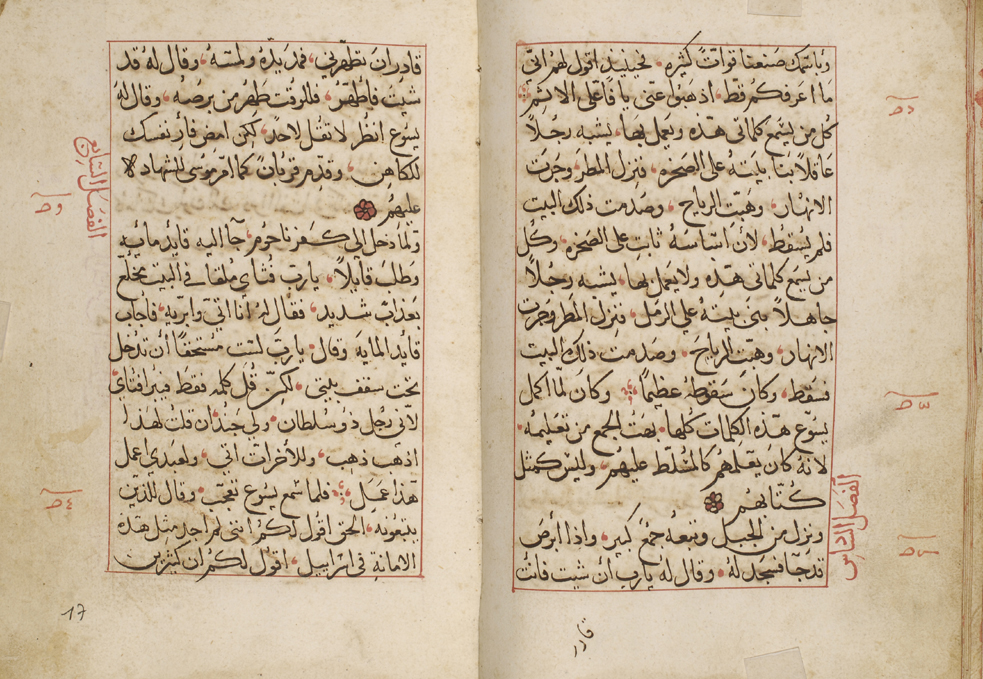 وباسمك صنعنا قوات كثيره، فحينيذ اقول لهم اني
ما اعرفكم قط، اذهبوا عني يا فاعلي الاثم
كل من يسمع كلماتي هذه ويعمل بها، يشبه رجلاً
عاقلا بنا بيته على الصخره، فنزل المطر وجرت
الانهار، وهبت الرياح، وصدمت ذلك البيت
فلم يسقط، لان اساسه ثابت على الصخره، وكل
من يسمع كلماتي هذه ولا يعمل بها، يشبه رجلاً
جاهلاً بنى بيته على الرمل، فنزل المطر وجرت
الانهار، وهبت الرياح، وصدمت ذلك البيت
فسقط، وكان سقوطه عظيماً وكان لما اكمل
يسوع هذه الكلمات كلها، بهت الجمع من تعليمه،
لانه كان يعلمهم كالمسلط عليهم، وليس كمثل
كتابهم
ونزل من الجبل وتبعه جمع كبير، واذا ابرص
قد جآ فسجد له، وقال له يارب ان شيت فانت
الفصل السادس
قادر
قادر ان تطهرني، فمد يده ولمسه، وقال له قد
شيت فاطهر، فللوقت طهر من برصه، وقال له
يسوع انظر لا تقل لاحد، لكن امض فار نفسك
للكاهن، وقدم قربان كما امر موسى للشهاده
عليهم
ولما دخل الى كفرناحوم، جآ اليه قايد مايه
وطلب قايلاً، يارب فتاي ملقا في البيت مخلع
بعذاب شديد، فقال له انا اتي وابريه، فاجاب
قايد المايه وقال، يارب لست مستحقاً ان تدخل
تحت سقف بيتي، لكن قل كلمه فقط فيبرا فتاي
لاني رجل ذو سلطان، ولي جند ان قلت لهذا
اذهب ذهب، وللاخر ات اتى، ولعبدي اعمل
هذا عمل، فلما سمع يسوع تعجب، وقال للذين
يتبعونه، الحق اقول لكم اني لم اجد مثل هذه
الامانة في اسراييل، اقول لكم ان كثيرين
الفصل السابع
17